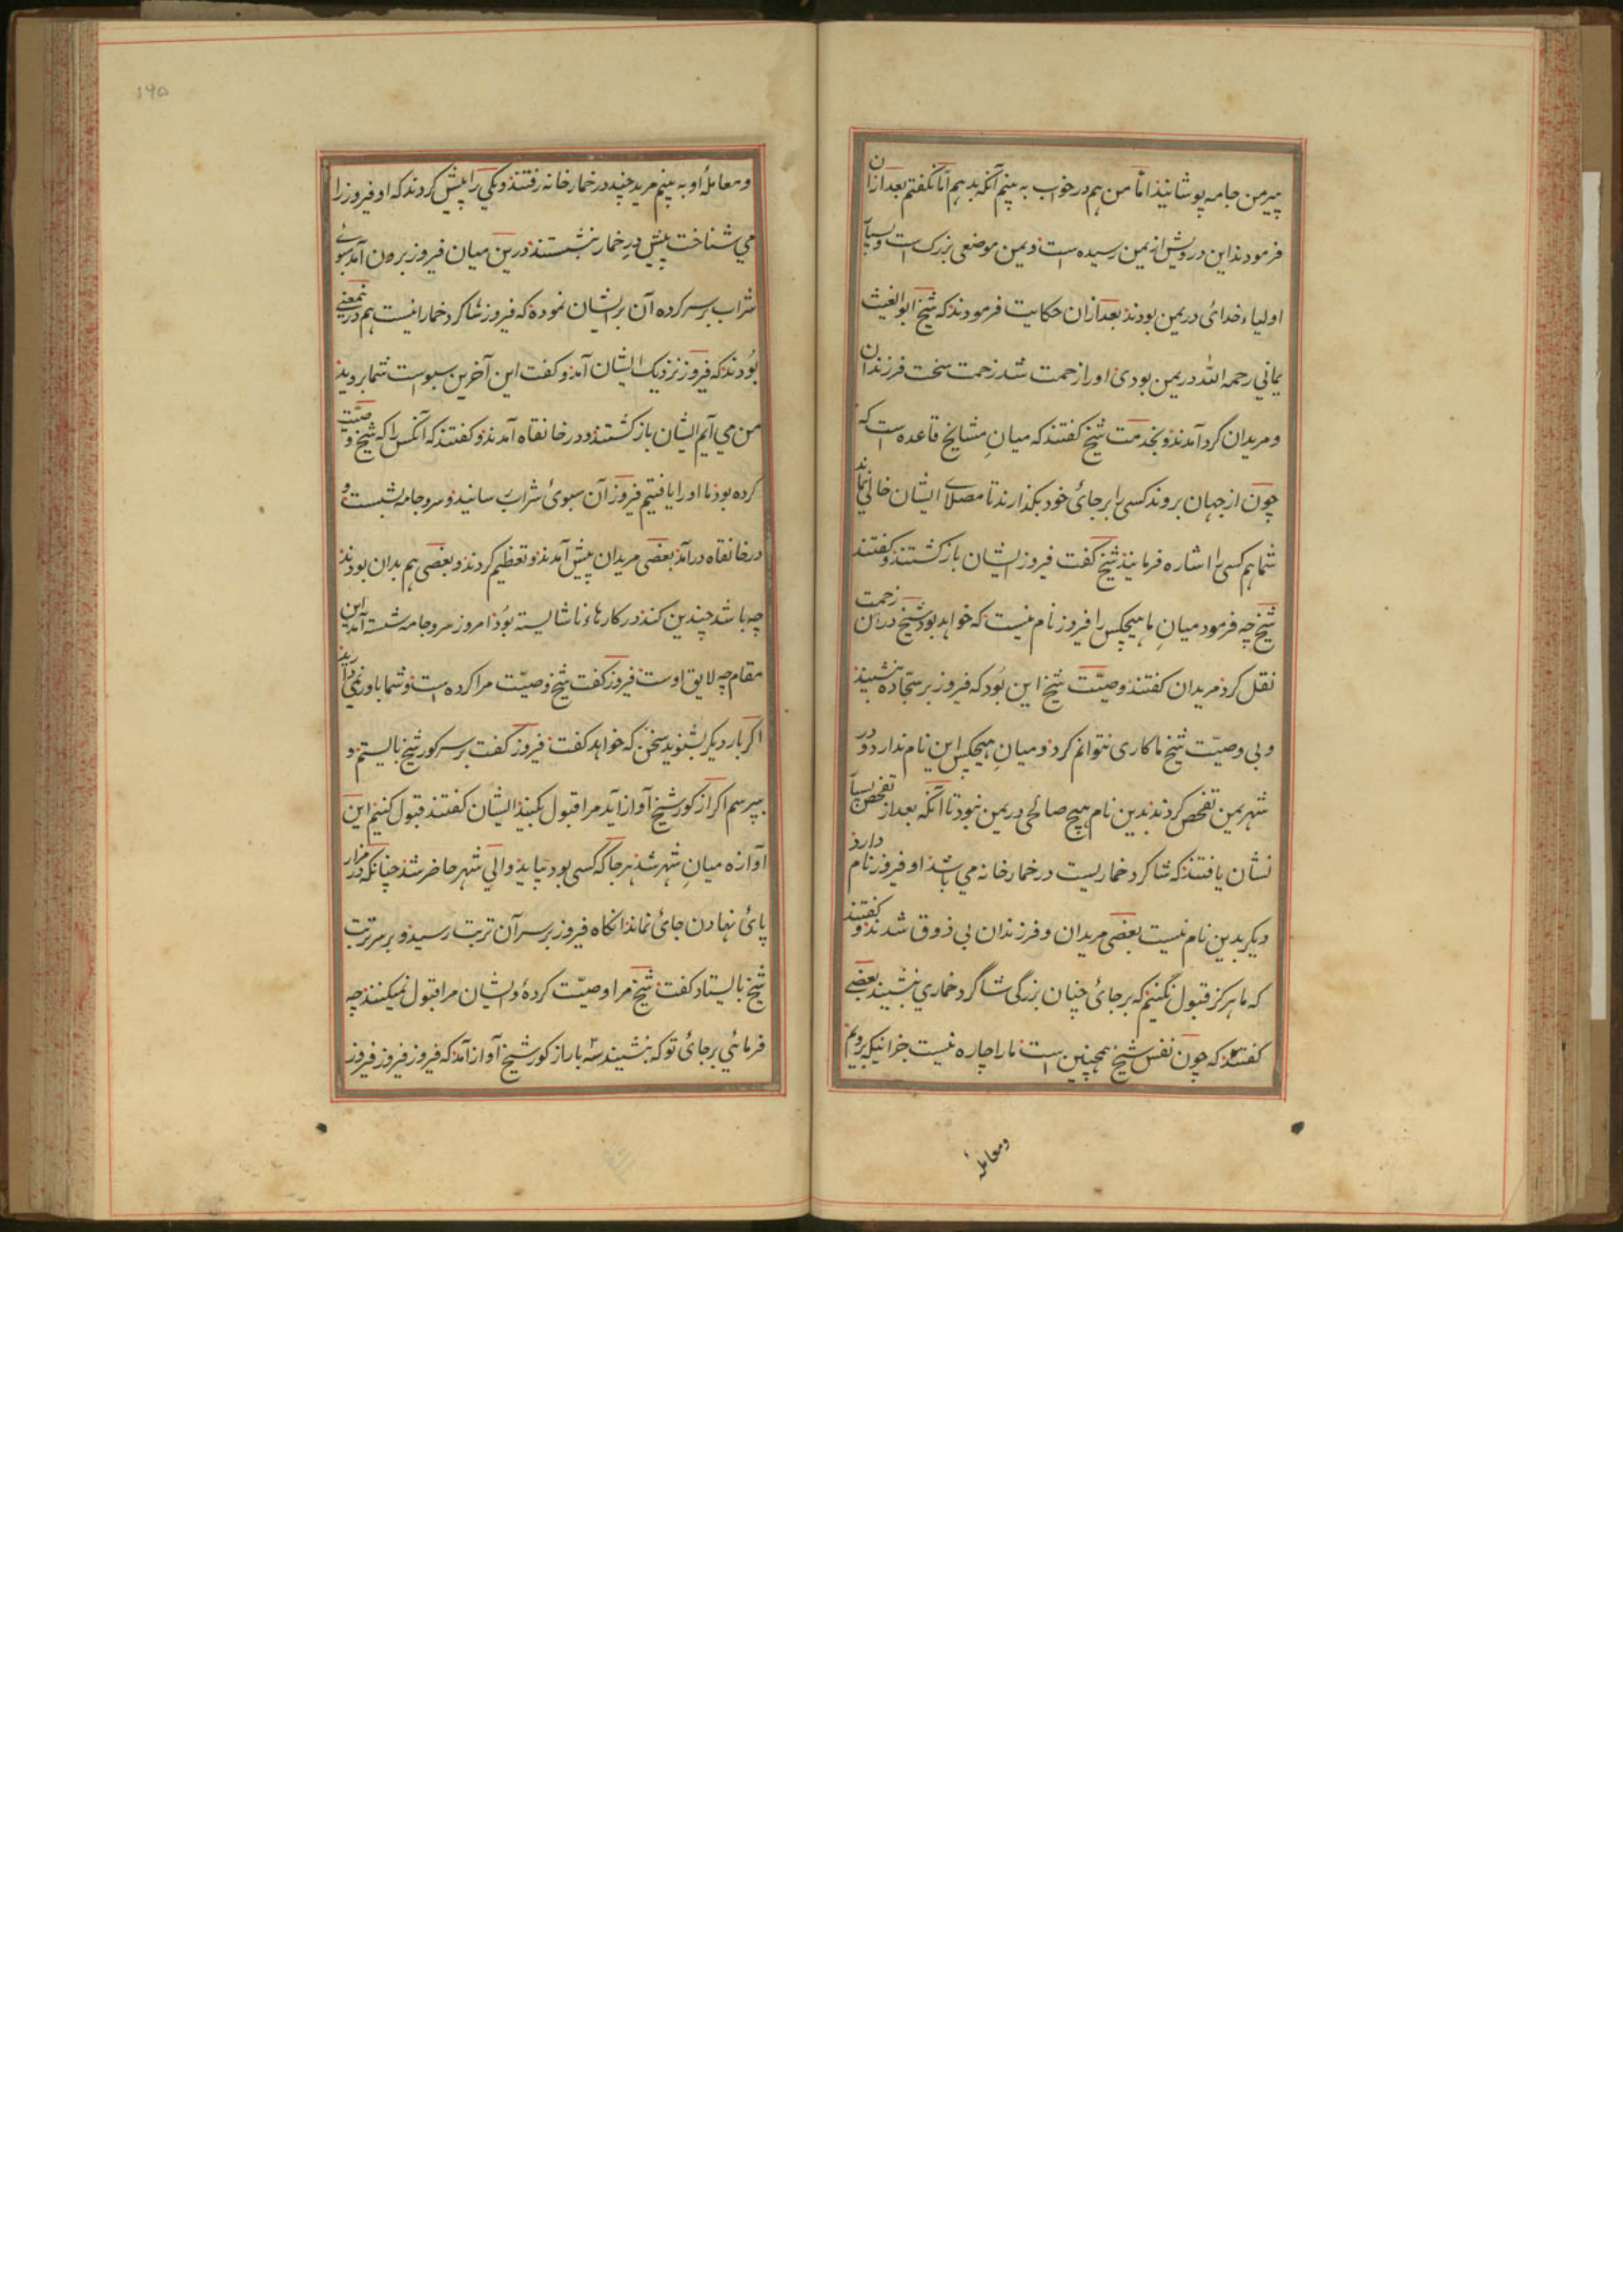 پیر من جامه پوشانیذ اما من هم در خواب به بینم آنکه بدهم اما نکفتم بعد ازان
فرمودند این درویش از یمن رسیده است و یمن موضعی بزرک است و بسیار
اولیاء خدائ در یمن بودند بعد ازان حکایت فرمودند که شیخ ابوالغیث
یمانی رحمه الله در یمن بودی او را زحمت شد زحمت سخت فرزندان
و مریدان کرد آمدند و بخدمت شیخ کفتند که میان مشایخ قاعده است که
چون از جهان بروند کسی را بر جائ خود بکذارند تا مصلای ایشان خالی نماند
شما هم کسی را اشاره فرمایند شیخ کفت فیروز ایشان باز کشتند و کفتند
شیخ چه فرمود میان ما هیچکس را فیروز نام نیست که خواهد بود شیخ دران زحمت
نقل کرد مریدان کفتند وصیّت شیخ این بود که فیروز بر سجّاده بنشیند
و بی وصیّت شیخ ما کاری نتوانم کرد و میان هیچکس این نام ندارد و در
شهر یمن تفحص کردند بدین نام هیچ صالحی در یمن نبود تا آنکه بعد از تفحص بسیار
نشان یافتند که شاکرد خماریست در خمارخانه می باشد او فیروز نام دارد
دیکر بدین نام نیست بعضی مریدان و فرزندان بی ذوق شدند و کفتند
که ما هرکز قبول نکنیم که بر جائ چنان بزرکی شاکرد خماری بنشیند بعضی
کفتند که چون نفس شیخ همچنین است ما را چاره نیست جز انیکه برویم
ومعامله
۱۹۵
و معاملهٔ او به بینم مرید چند در خمارخانه رفتند و یکی را پیش کردند که او فیروز را
می شناخت پیش در خمار بنشستند درین میان فیروز برون آمد سبوئ
شراب بر سر کرده آن بر ایشان نموده که فیروز شاکرد خمار اینست هم درین معنی
بودند که فیروز نزدیک ایشان آمد و کفت این آخرین سبو است شما بروید
من می آیم ایشان باز کشتند و در خانقاه آمدند و کفتند که آنکس را که شیخ وصیّت
کرده بود ما او را یافتیم فیروز آن سبوئ شراب رسانید و سر و جامه بشست و
در خانقاه درآمد بعضی مریدان پیش آمدند و تعظیم کردند و بعضی هم بدان بودند
چه باشد چندین کند در کارهاء ناشایسته بود امروز سر و جامه شسته آمد این
مقام چه لایق اوست فیروز کفت شیخ وصیّت مرا کرده است و شما باور نمی دارید
اکر بار دیکر بشنوید سخن که خواهد کفت فیروز کفت بر سر کور شیخ بایستم و
بپرسم اکر از کور شیخ آواز آید مرا قبول بکنید ایشان کفتند قبول کنیم این
آوازه میان شهر شد هرجا که کسی بود بیاید والی شهر حاضر شد چنانکه در مزار
پائ نهادن جائ نماند انکاه فیروز بر سر آن تربت رسید و بر سر تربت
شیخ بایستاد کفت شیخ مرا وصیّت کردهٔ و ایشان مرا قبول نمیکنند چه
فرمائی بر جائ تو که بنشیند سه بار از کور شیخ آواز آمد که فیروز فیروز فیروز